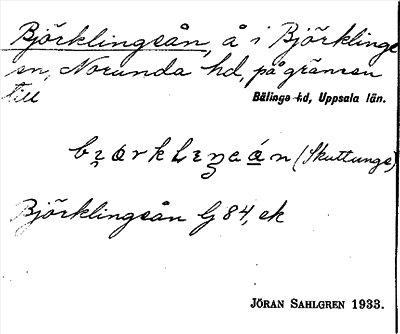 Björklingeån, å i Björklinge
sn, Norunda hd, på gränsen
till Bälinge hd, Uppsala län.
(Skuttunge)
Björklingeån G 84, ek
JÖRAN SAHLGREN 1933.